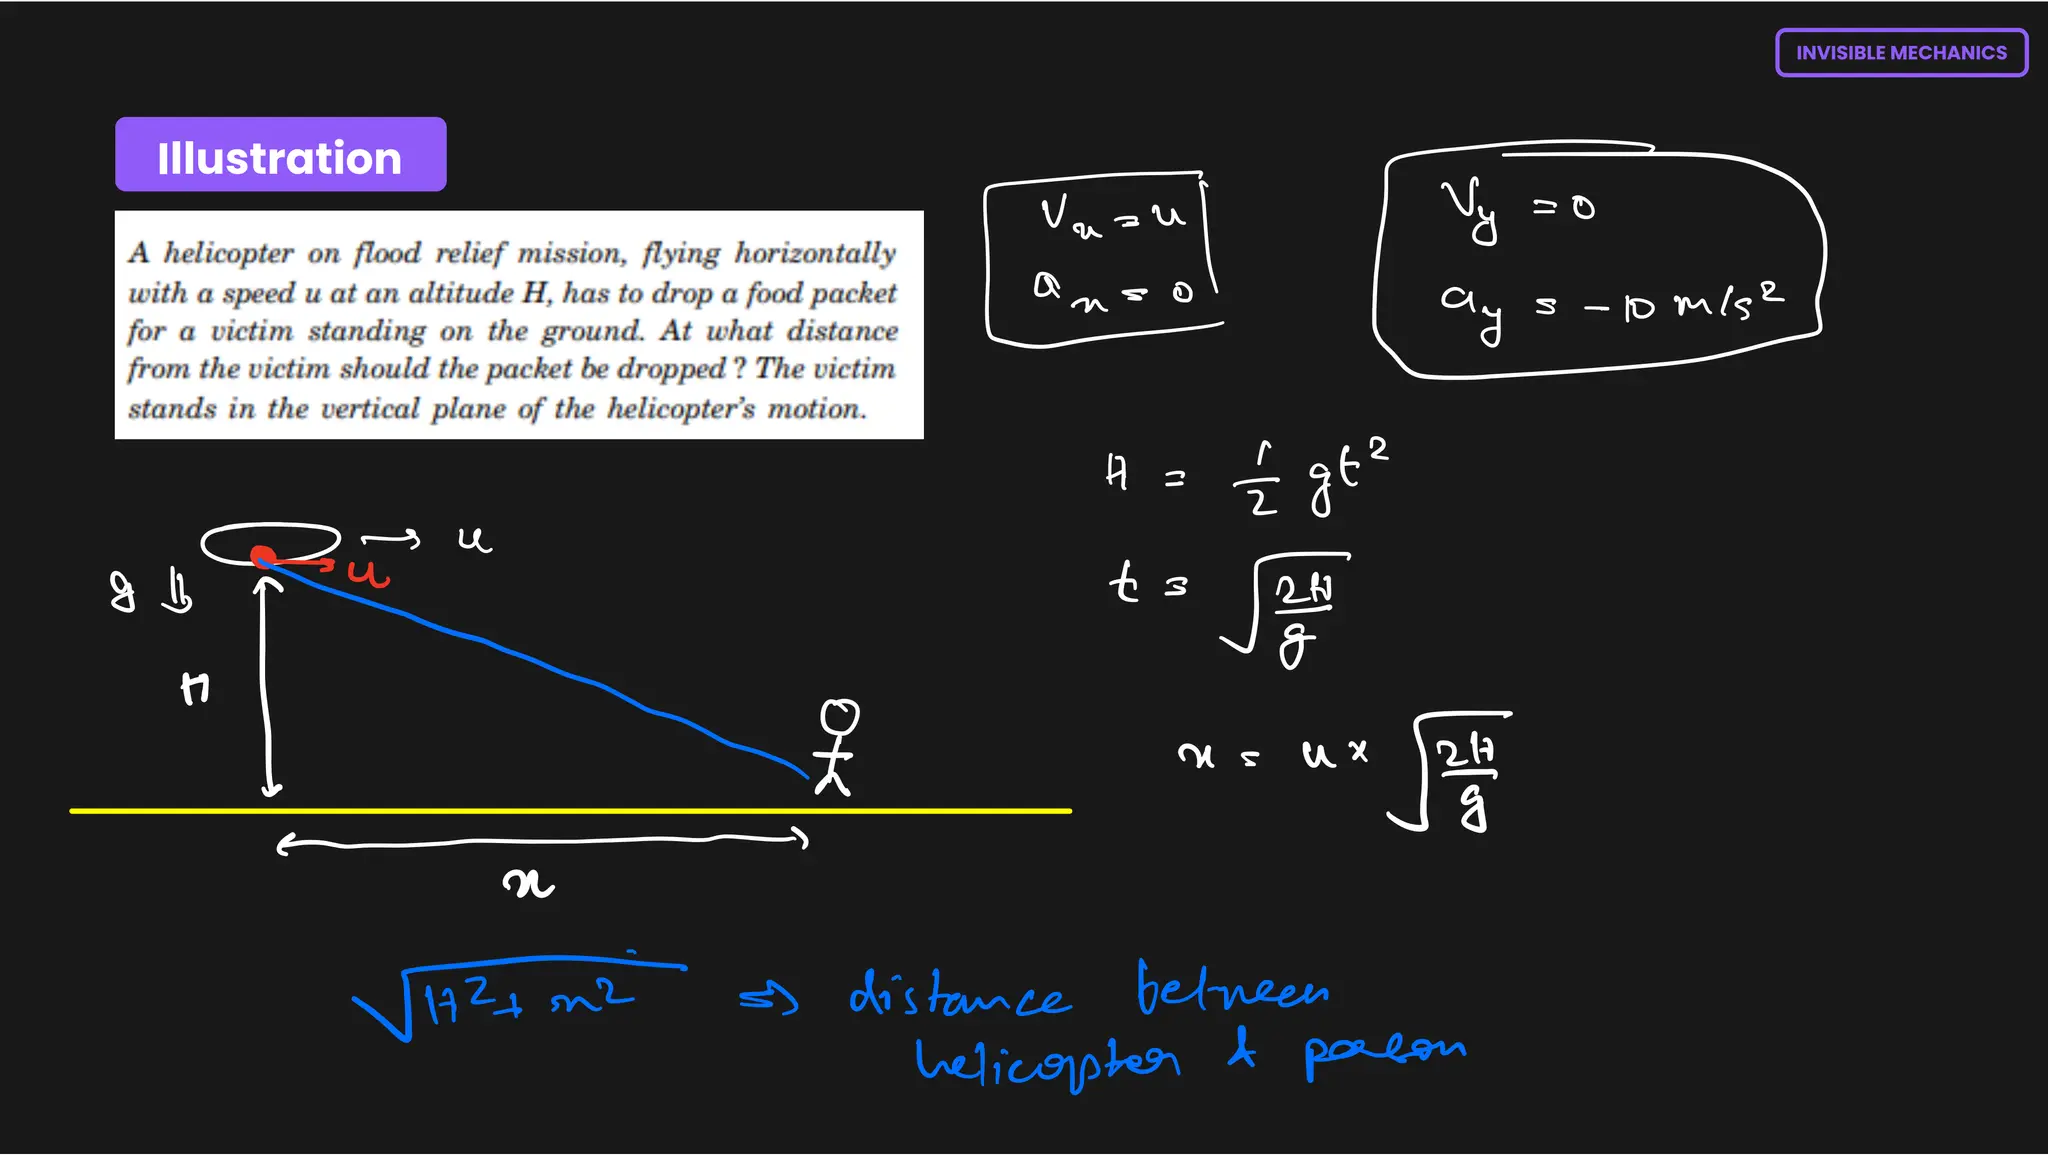 INVISIBLE MECHANICS
Illustration
A helicopter on flood relief mission, flying horizontally
with a speed u at an altitude H, has to drop a food packet
for a victim standing on the ground. At what distance
from the victim should the packet be dropped ? The victim
stands in the vertical plane of the helicopter's motion.
Vx = u
ax = 0
Vy = 0
ay = -10 m/s²
H = 1/2 gt²
t = √(2H/g)
x = u × √(2H/g)
u
u
g
H
x
√(H² + x²) ⇒ distance between
helicopter & person